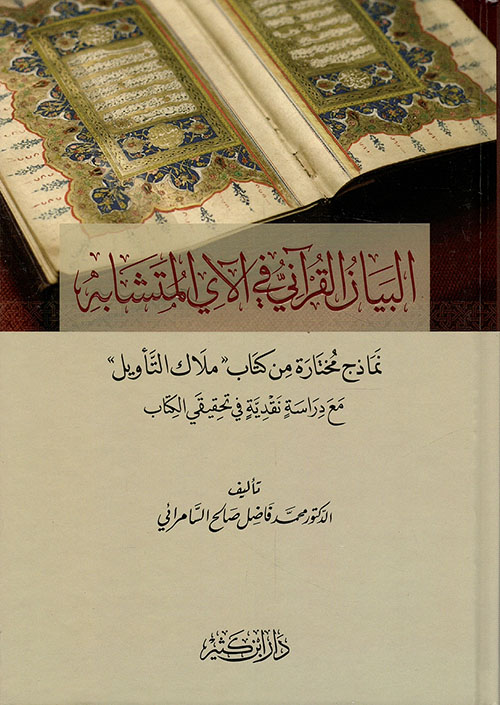 البيان القرآنيُّ في الآي المتشابهِ
نَمَاذج مُختَارَة مِن كتَاب «ملَاك التَّأويل»
مَعَ دِرَاسَةٍ نَقْدِيَّةٍ في تحقِيقَي الكِتَاب
تأليف
الدكتور محمّد فَاضِل صَالح السَّامرائي
دَار ابْن كَثير